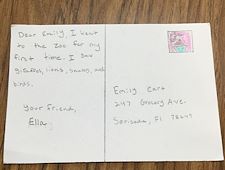 Dear Emily, I went
to the zoo for my
first time. I saw
giraffes, lions, snakes, and
birds.
Your friend,
Ella
Emily Cart
247 Grocery Ave.
Sarisada, Fl 78247